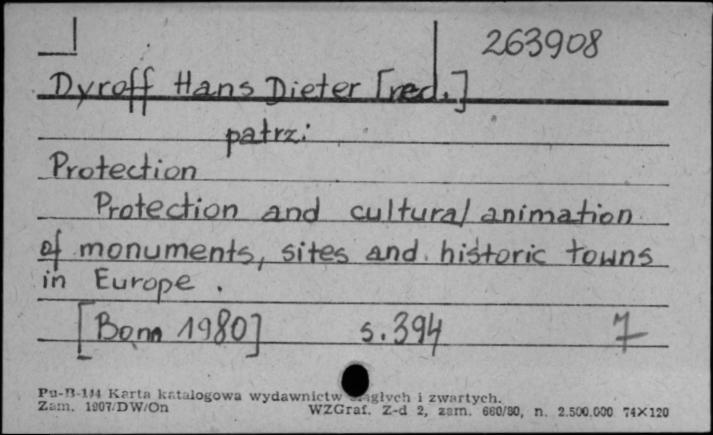 263908
Dyroff Hans Dieter [red.]
patrz:
Protection
Protection and cultural animation
of monuments, sites and historic towns
in Europe.
[Bonn 1980] s. 394 7
Pu-B-144 Karta katalogowa wydawnictw ciągłych i zwartych.
Zam. 1907/DW/On WZGraf. Z-d 2, zam. 660/80, n. 2.500.000 74×120